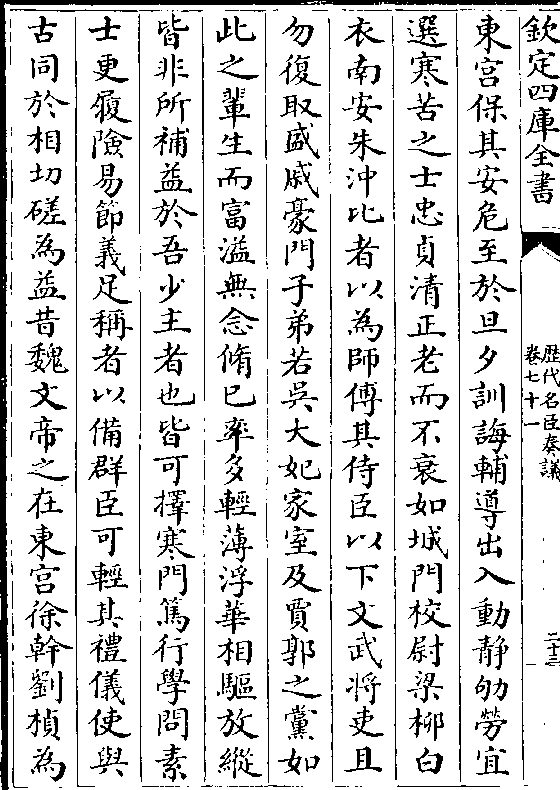 欽定四庫全書
歴代名臣奏議
卷七十一
二十三
東宮保其安危至於旦夕訓誨輔導出入動静劬勞宜
選寒苦之士忠貞清正老而不衰如城門校尉梁栁白
衣南安朱沖比者以為師傅其侍臣以下文武将吏且
勿復取盛戚豪門子弟若吳大妃家室及賈郭之黨如
此之輩生而富溢無念脩已率多輕薄浮華相驅放縱
皆非所補益於吾少主者也皆可擇寒門篤行學問素
士更履險易節義足稱者以備群臣可輕其禮儀使與
古同於相切磋為益昔魏文帝之在東宫徐幹劉楨為